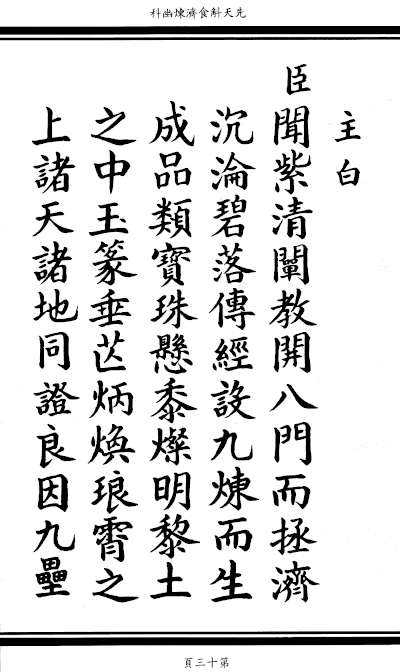 先天斛食濟煉幽科
主白
臣聞紫清闡教開八門而拯濟
沉淪碧落傳經設九煉而生
成品類寶珠懸黍燦明黎土
之中玉篆垂芒炳煥琅霄之
上諸天諸地同證良因九壘
第十三頁